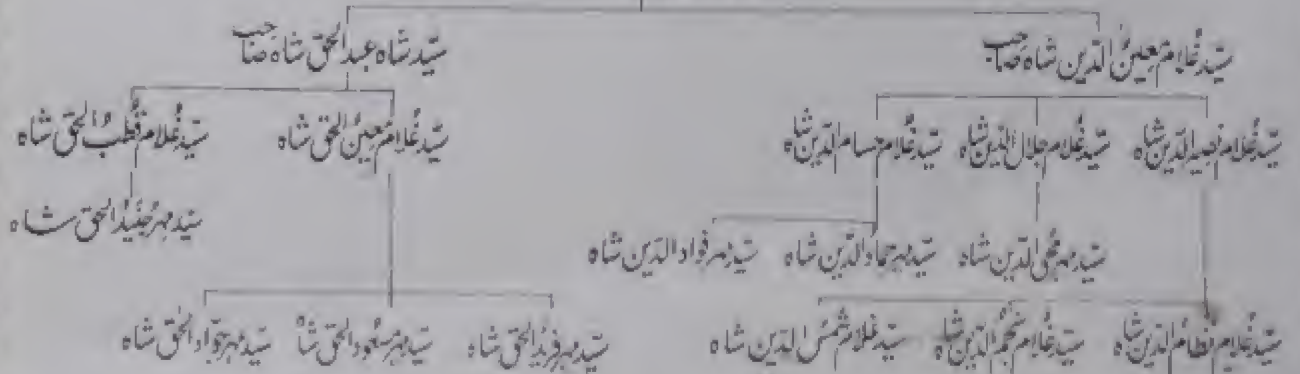 سید غلام معین الدین شاہ صاحب سید شاہ عبد الحق شاہ صاحب
سید غلام نصیر الدین شاہ سید غلام جلال الدین شاہ سید غلام حسام الدین شاہ سید غلام معین الحق شاہ سید غلام قطب الحق شاہ
سید مہر محی الدین شاہ سید مہر عماد الدین شاہ سید مہر فواد الدین شاہ سید مہر جنید الحق شاہ
سید غلام نظام الدین شاہ سید غلام نجم الدین شاہ سید غلام شمس الدین شاہ سید مہر فرید الحق شاہ سید مہر مسعود الحق شاہ سید مہر جواد الحق شاہ